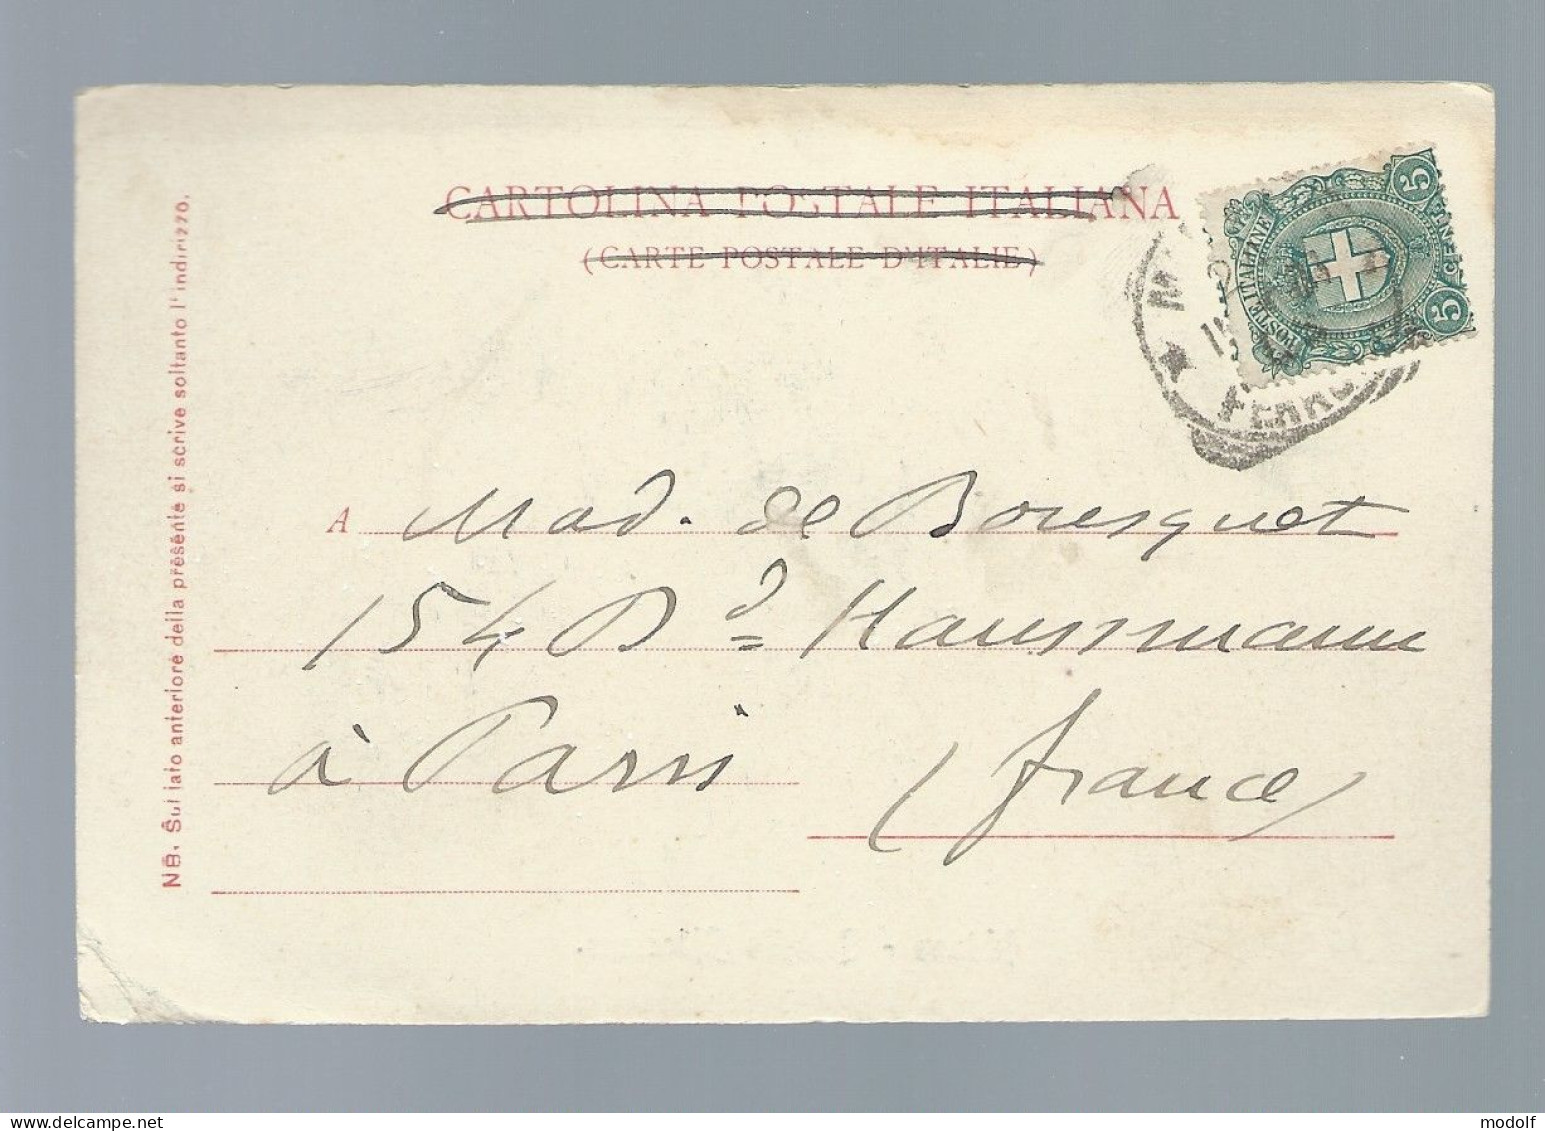 CARTOLINA POSTALE ITALIANA
(CARTE POSTALE D'ITALIE)
POSTE ITALINE
5
5
A Mad. de Bousquet
154 Bd Haussmann
à Paris
(France)
NB. Sul lato anteriore della presente si scrive soltanto l'indirizzo.
www.delcampe.net
modolf